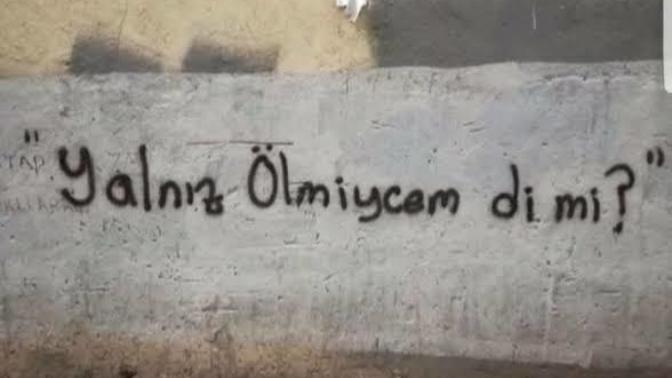 "Yalnız Ölmiycem di mi?"